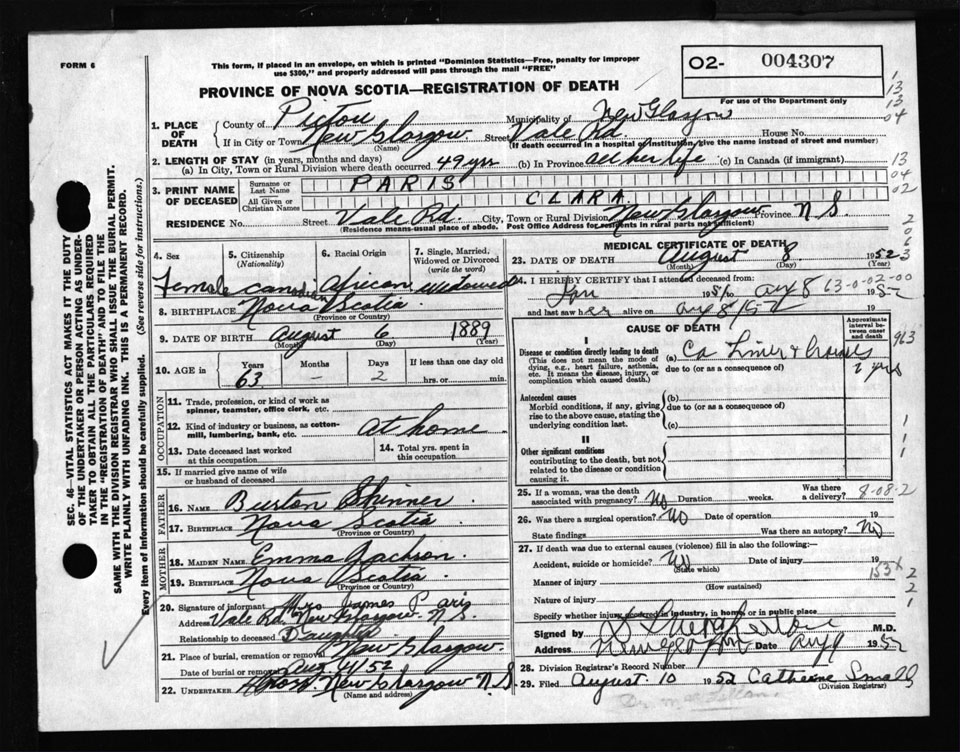 FORM 6
This form, if placed in an envelope, on which is printed "Dominion Statistics—Free, penalty for improper
use $300," and properly addressed will pass through the mail "FREE"
O2- 004307
For use of the Department only
PROVINCE OF NOVA SCOTIA—REGISTRATION OF DEATH
1. PLACE OF DEATH
County of Pictou Municipality of New Glasgow
If in City or Town New Glasgow Street Vale Rd. House No.
(Name) (If death occurred in a hospital of institution, give the name instead of street and number)
2. LENGTH OF STAY (in years, months and days)
(a) In City, Town or Rural Division where death occurred 49 yrs (b) In Province all her life (c) In Canada (if immigrant)
3. PRINT NAME OF DECEASED
Surname or Last Name PARIS
All Given or Christian Names CLARA
RESIDENCE No. Street Vale Rd. City, Town or Rural Division New Glasgow Province N.S.
(Residence means usual place of abode. Post Office Address for residents in rural parts not sufficient)
4. Sex
5. Citizenship
(Nationality)
6. Racial Origin
7. Single, Married,
Widowed or Divorced
(write the word)
Female Canadian African Widowed
8. BIRTHPLACE Nova Scotia
(Province or Country)
9. DATE OF BIRTH August 6 1889
(Month) (Day) (Year)
10. AGE in Years Months Days If less than one day old
63 – 2 hrs. or min.
OCCUPATION
11. Trade, profession, or kind of work as
spinner, teamster, office clerk, etc.
12. Kind of industry or business, as cotton-
mill, lumbering, bank, etc. At home
13. Date deceased last worked
at this occupation
14. Total yrs. spent in
this occupation
15. If married give name of wife
or husband of deceased
FATHER
16. NAME Burton Skinner
17. BIRTHPLACE Nova Scotia
(Province or Country)
MOTHER
18. MAIDEN NAME Emma Jackson.
19. BIRTHPLACE Nova Scotia
(Province or Country)
20. Signature of informant Mrs James Paris
Address Vale Rd. New Glasgow N.S.
Relationship to deceased Daughter
21. Place of burial, cremation or removal New Glasgow.
Date of burial or removal Aug 11/52
22. UNDERTAKER New Glasgow N.S.
(Name and address)
MEDICAL CERTIFICATE OF DEATH
23. DATE OF DEATH August 8 1952
(Month) (Day)
24. I HEREBY CERTIFY that I attended deceased from:
Jan 1951 to Aug 8 1952
63-0-02-00
and last saw her alive on Aug 8/52 19
CAUSE OF DEATH
Approximate
interval be-
tween onset
and death
I
Disease or condition directly leading to death
(This does not mean the mode of
dying, e.g., heart failure, asthenia,
etc. It means the disease, injury, or
complication which caused death.)
(a) Ca Liver &
due to (or as a consequence of)
2 yrs
Antecedent causes
Morbid conditions, if any, giving
rise to the above cause, stating the
underlying condition last.
(b)
due to (or as a consequence of)
(c)
II
Other significant conditions
contributing to the death, but not
related to the disease or condition
causing it.
25. If a woman, was the death
associated with pregnancy? No Duration weeks. Was there a delivery? 8-08-2
26. Was there a surgical operation? No Date of operation 19
State findings Was there an autopsy? No
27. If death was due to external causes (violence) fill in also the following:—
Accident, suicide or homicide? No Date of injury 19
(State which)
Manner of injury
(How sustained)
Nature of injury
Specify whether injury occurred in industry, in home or in public place
Signed by M.D.
Address New Glasgow Date Aug 9 1952
28. Division Registrar's Record Number
29. Filed August 10 1952 Catherine Small
(Division Registrar)
SEC. 46—VITAL STATISTICS ACT MAKES IT THE DUTY
OF THE UNDERTAKER OR PERSON ACTING AS UNDER-
TAKER TO OBTAIN ALL THE PARTICULARS REQUIRED
IN THE "REGISTRATION OF DEATH" AND TO FILE THE
SAME WITH THE DIVISION REGISTRAR WHO SHALL ISSUE THE BURIAL PERMIT.
WRITE PLAINLY WITH UNFADING INK. THIS IS A PERMANENT RECORD.
Every item of information should be carefully supplied. (See reverse side for instructions.)
1
13
13
04
13
04
02
2
0
6
3
963
1
1
1
2
2
1